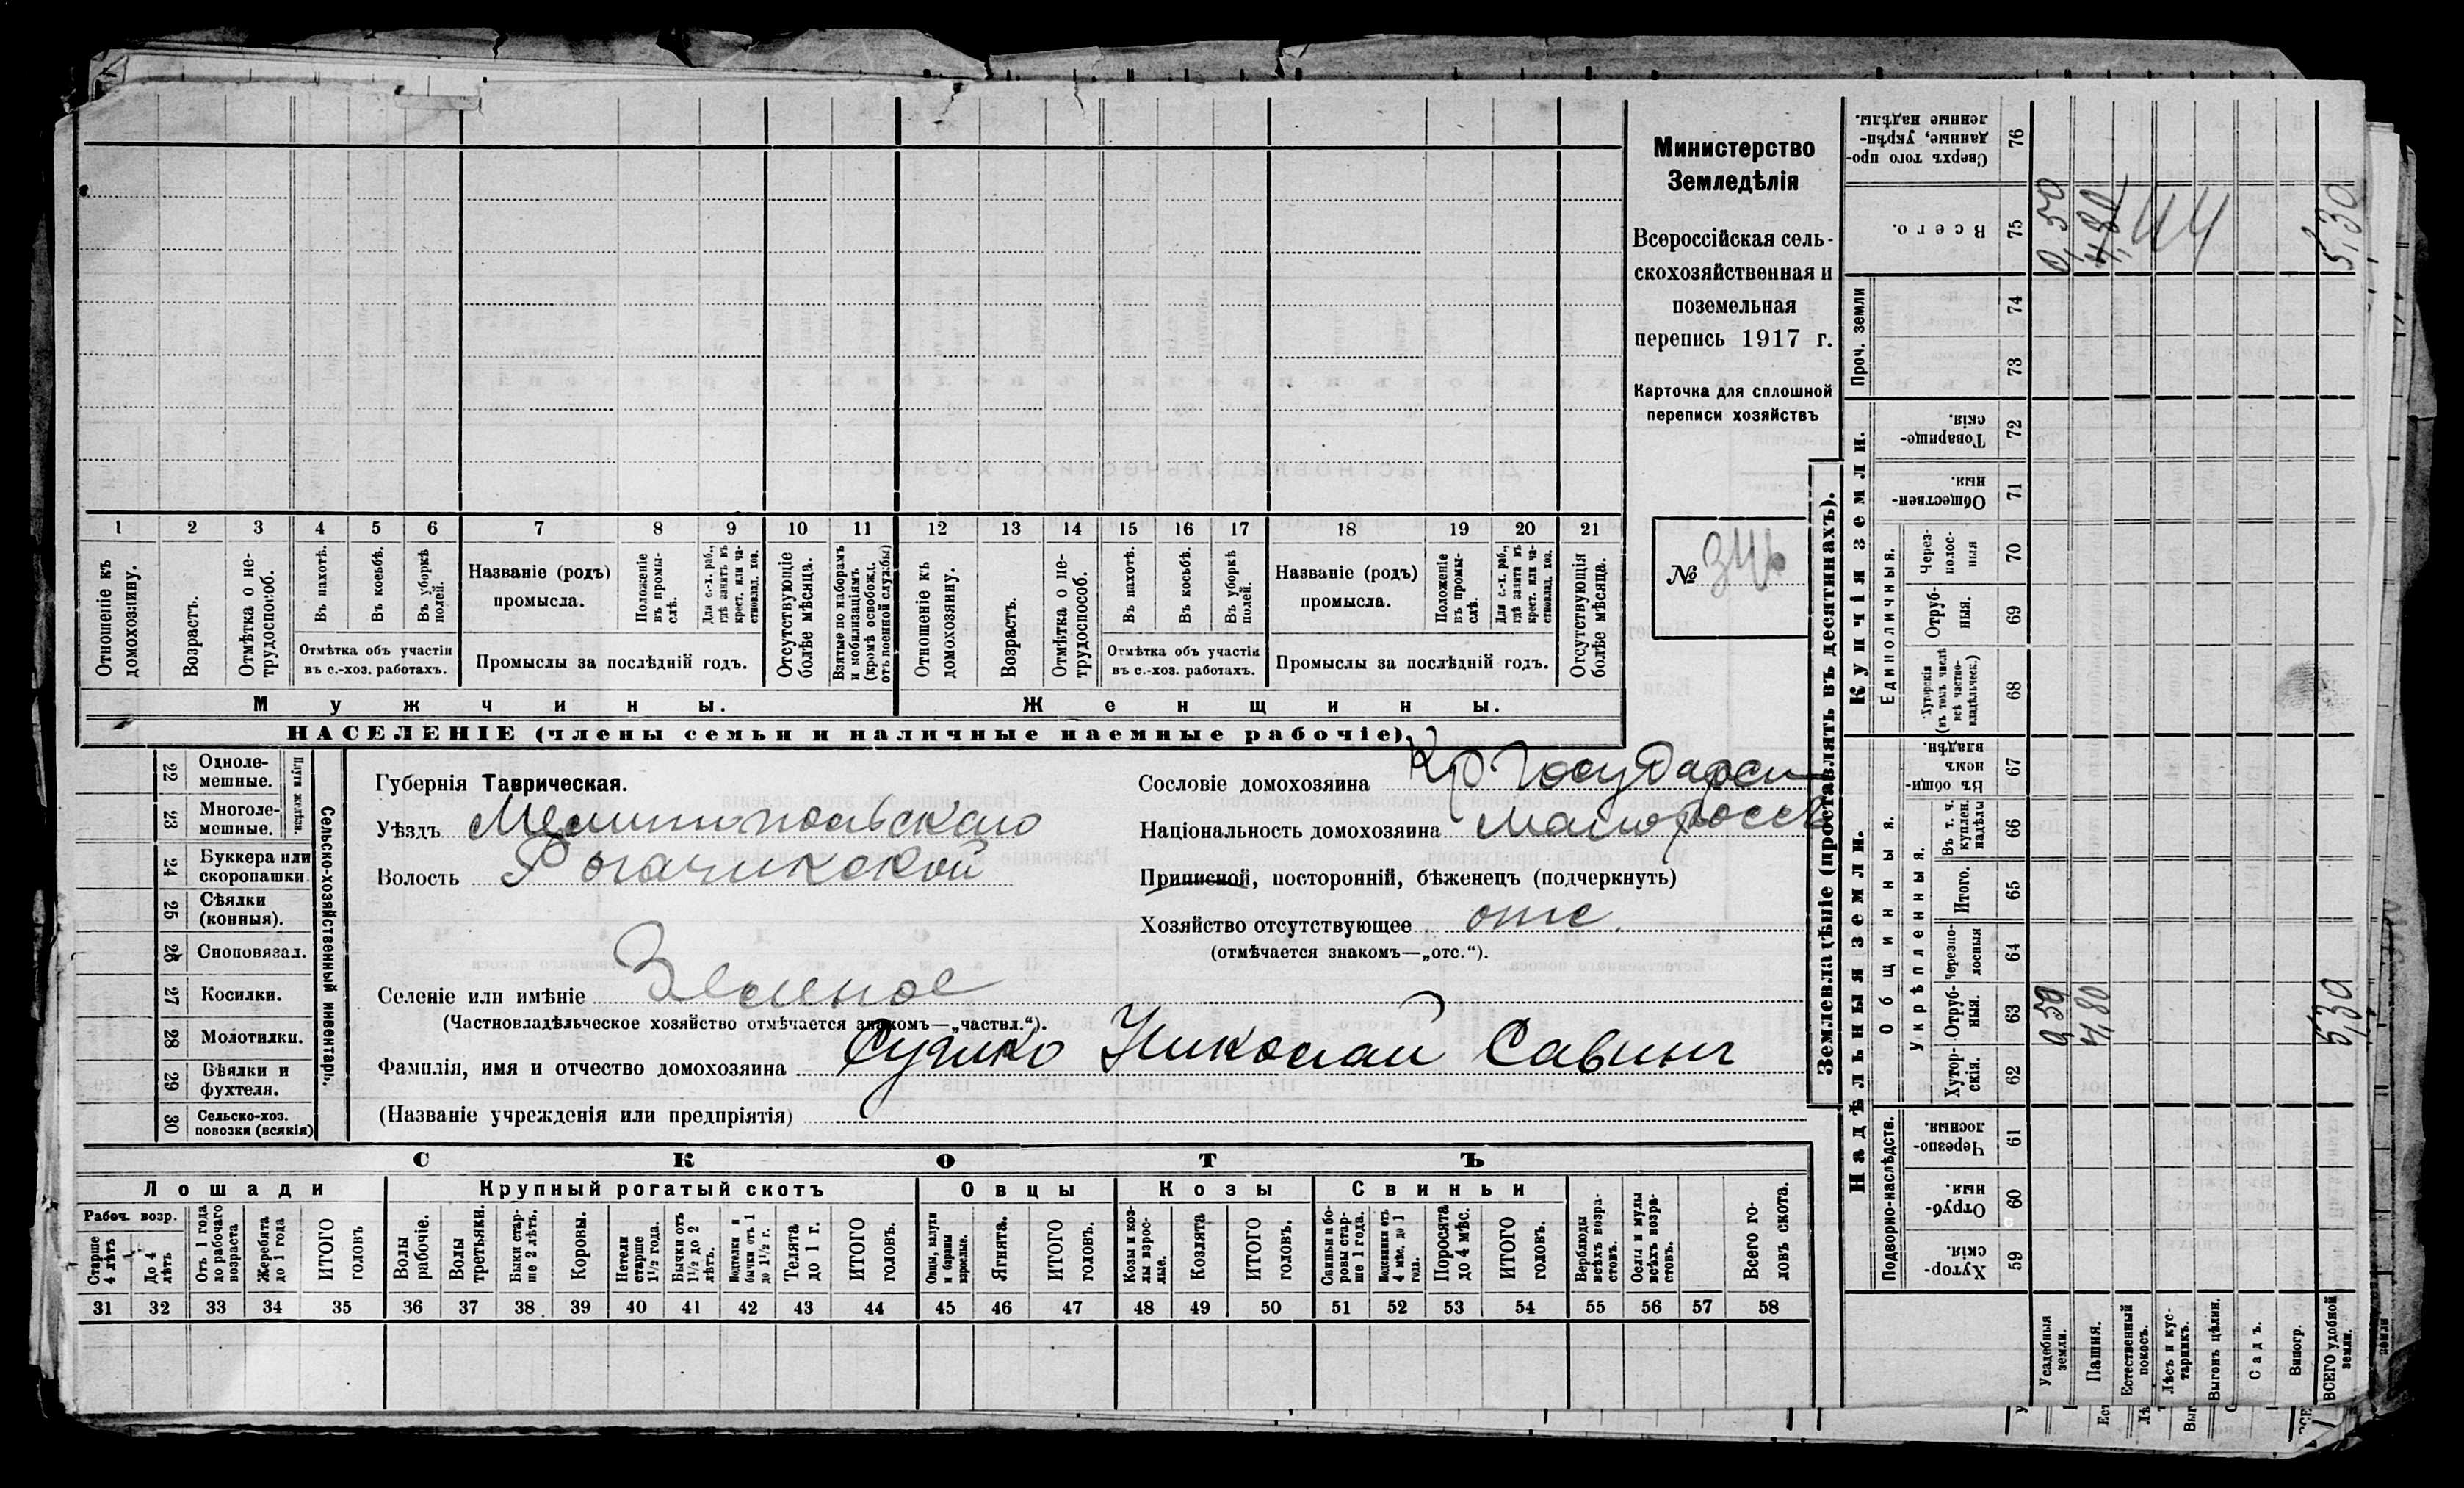 Министерство
Земледѣлія
Всероссійская сель-
скохозяйственная и
поземельная
перепись 1917 г.
Карточка для сплошной
переписи хозяйствъ
№
1 2 3 4 5 6 7 8 9 10 11 12 13 14 15 16 17 18 19 20 21
Отношеніе къ домохозяину.
Возрастъ.
Отмѣтка о не-трудоспособ.
Въ пахотѣ.
Въ косьбѣ.
Въ уборкѣ полей.
Отмѣтка объ участіи
въ с.-хоз. работахъ.
Названіе (родъ)
промысла.
Положеніе въ промы-слѣ.
Для с.-х. раб., гдѣ занятъ въ крест. или ча-стновлад. хоз.
Промыслы за послѣдній годъ.
Отсутствующіе болѣе мѣсяца.
Взятые по наборамъ и мобилизаціямъ (кромѣ освобожд. отъ военной службы)
Отношеніе къ домохозяину.
Возрастъ.
Отмѣтка о не-трудоспособ.
Въ пахотѣ.
Въ косьбѣ.
Въ уборкѣ полей.
Отмѣтка объ участіи
въ с.-хоз. работахъ.
Названіе (родъ)
промысла.
Положеніе въ промы-слѣ.
Для с.-х. раб., гдѣ занята въ крест. или ча-стновлад. хоз.
Промыслы за послѣдній годъ.
Отсутствующія болѣе мѣсяца.
Мужчины.
Женщины.
НАСЕЛЕНІЕ (члены семьи и наличные наемные рабочіе).
22 Одноле-мешные.
23 Многоле-мешные.
Плуги желѣзн.
24 Буккера или скоропашки
25 Сѣялки (конныя).
26 Сноповязал.
27 Косилки.
28 Молотилки.
29 Вѣялки и фухтеля.
30 Сельско-хоз. повозки (всякія)
Сельско-хозяйственный инвентарь.
Губернія Таврическая.
Уѣздъ Мелитопольскаго
Волость Рогачикской
Сословіе домохозяина Кр Государст
Національность домохозяина Малороссъ
Приписной, посторонній, бѣженецъ (подчеркнуть)
Хозяйство отсутствующее отс.
(отмѣчается знакомъ—„отс.“).
Селеніе или имѣніе Зеленое
(Частновладѣльческое хозяйство отмѣчается знакомъ—„частвл.“).
Фамилія, имя и отчество домохозяина Сучико Николай Савинъ
(Названіе учрежденія или предпріятія)
СКОТЪ
Лошади
Крупный рогатый скотъ
Овцы
Козы
Свиньи
Рабоч. возр.
Старше 4 лѣтъ
До 4 лѣтъ
Отъ 1 года до рабочаго возраста
Жеребята до 1 года
ИТОГО головъ
Волы рабочіе.
Волы третьяки.
Быки стар-ше 2 лѣтъ.
Коровы.
Нетели старше 1½ года.
Бычки отъ 1½ до 2 лѣтъ.
Подтелки и бычки отъ 1 до 1½ г.
Телята до 1 г.
ИТОГО головъ.
Овцы, валухи и бараны взрослые.
Ягнята.
ИТОГО головъ.
Козы и коз-лы взрос-лые.
Козлята
ИТОГО головъ.
Свиньи и бо-ровы стар-ше 1 года.
Подсвинки отъ 4 мѣс. до 1 года.
Поросята до 4 мѣс.
ИТОГО головъ.
Верблюды всѣхъ возра-стовъ.
Ослы и мулы всѣхъ возра-стовъ.
Всего го-ловъ скота.
31 32 33 34 35 36 37 38 39 40 41 42 43 44 45 46 47 48 49 50 51 52 53 54 55 56 57 58
Землевладѣніе (проставлять въ десятинахъ).
Надѣльныя земли.
Купчія земли.
Проч. земли
Подворно-наслѣдств.
Общинныя.
Укрѣпленныя.
Единоличныя.
Сверхъ того про-данные, укрѣп-ленные надѣлы. 76
Всего. 75 0,50 4,80 5,30
74
73
Товарище-скія. 72
Обществен-ныя. 71
Через-полос-ныя 70
Отруб-ныя. 69
Хуторскія (въ томъ числѣ всѣ частно-владѣльческ.) 68
Въ общи-номъ владѣн. 67
Въ т. ч. куплен. надѣлы 66
Итого. 65
Черезпо-лосныя 64
Отруб-ныя. 63 0,50 4,80 5,30
Хутор-скія. 62
Черезпо-лосныя. 61
Отруб-ныя. 60
Хутор-скія. 59
Усадебныя земли.
Пашня.
Естественный покосъ.
Лѣсъ и кус-тарникъ.
Выгонъ цѣлин.
Садъ.
Виногр.
ВСЕГО удобной земли.